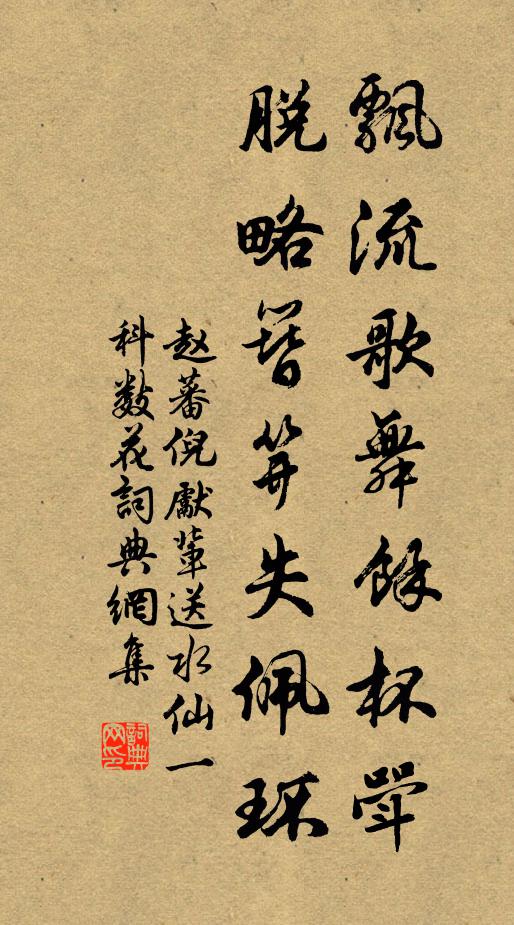 飄流歌舞餘杯斝
脱略簪笄失佩環
赵蕃倪獻輩送水仙一
科數花詞典網集
詞典网印